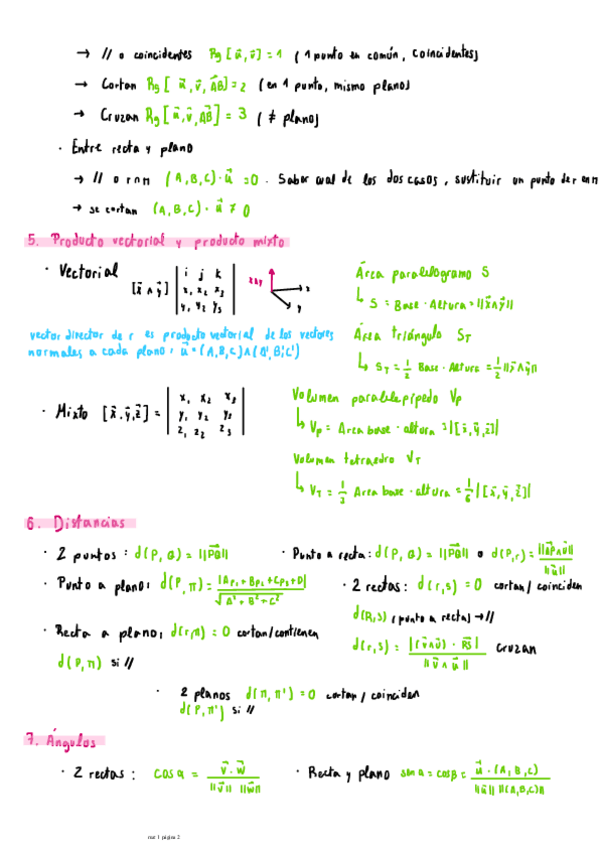 → // o coincidentes Rg [u⃗, v⃗] = 1 (1 punto en común, coincidentes)
→ Cortan Rg [u⃗, v⃗, AB⃗] = 2 (en 1 punto, mismo plano)
→ Cruzan Rg [u⃗, v⃗, AB⃗] = 3 (≠ plano)
· Entre recta y plano
→ // o r∩π (A,B,C)·u⃗ = 0 . Saber cual de los dos casos, sustituir un punto de r en π
→ se cortan (A,B,C)·u⃗ ≠ 0
5. Producto vectorial y producto mixto
· Vectorial [x⃗ ∧ y⃗] | i j k |
| x₁ x₂ x₃ |
| y₁ y₂ y₃ |
x∧y
x
y
Área paralelogramo S
↳ S = Base · Altura = ||x⃗∧y⃗||
vector director de r es producto vectorial de los vectores
normales a cada plano: u⃗ = (A,B,C)∧(A',B',C')
Área triángulo S_T
↳ S_T = 1/2 Base · Altura = 1/2 ||x⃗∧y⃗||
· Mixto [x⃗, y⃗, z⃗] = | x₁ x₂ x₃ |
| y₁ y₂ y₃ |
| z₁ z₂ z₃ |
Volumen paralelepípedo Vp
↳ Vp = Area base · altura = |[x⃗, y⃗, z⃗]|
Volumen tetraedro V_T
↳ V_T = 1/3 Area base · altura = 1/6 |[x⃗, y⃗, z⃗]|
6. Distancias
· 2 puntos : d(P, Q) = ||PQ⃗||
· Punto a recta: d(P, Q) = ||PQ⃗|| o d(P,r) = ||AP⃗∧u⃗|| / ||u⃗||
· Punto a plano: d(P, π) = |Ap₁ + Bp₂ + Cp₃ + D| / √(A² + B² + C²)
· 2 rectas: d(r,s) = 0 cortan / coinciden
d(R,s) (punto a recta) → //
· Recta a plano: d(r,π) = 0 cortan/contienen
d(r,s) = |(v⃗∧u⃗) · RS⃗| / ||v⃗ ∧ u⃗|| Cruzan
d(P, π) si //
· 2 planos d(π, π') = 0 cortan / coinciden
d(P, π') si //
7. Ángulos
· 2 rectas : cos α = v⃗ · w⃗ / ||v⃗|| ||w⃗||
· Recta y plano sen α = cos β = u⃗ · (A, B, C) / ||u⃗|| ||(A,B,C)||
mat 1 página 2